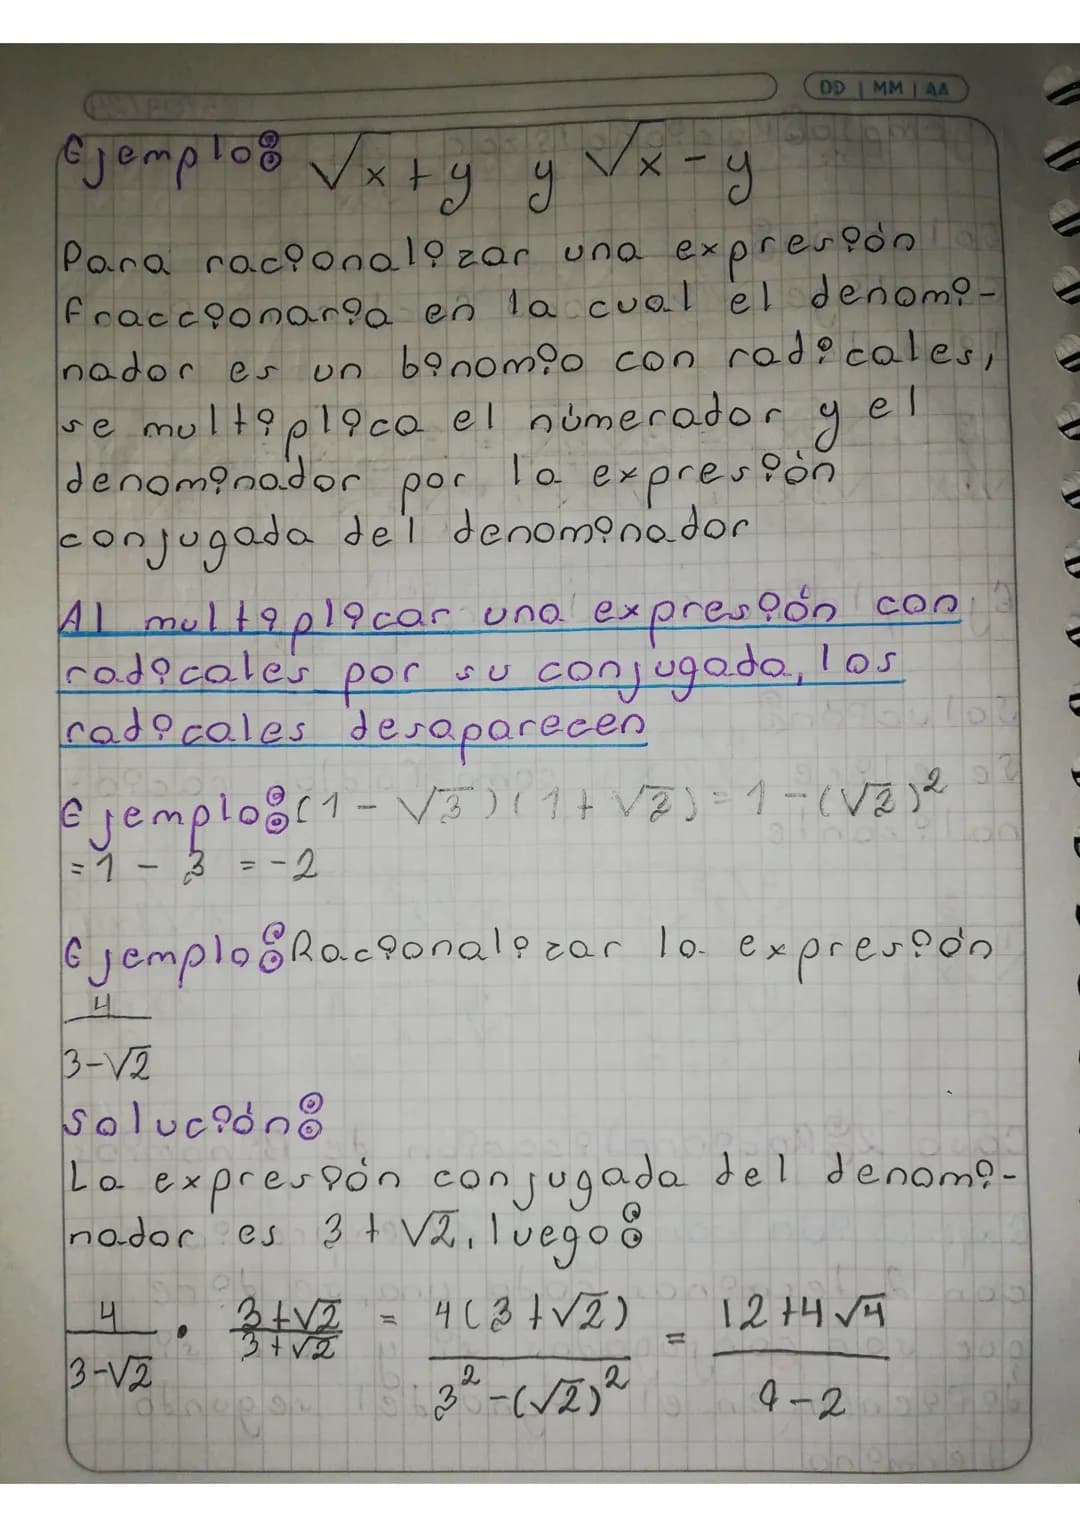 DD | MM | AA
Ejemplo: √x + y y √x - y
Para racionalizar una expresión
fraccionaria en la cual el denomi-
nador es un binomio con radicales,
se multiplica el númerador y el
denominador por la expresión
conjugada del denominador
Al multiplicar una expresión con
radicales por su conjugada, los
radicales desaparecen
Ejemplo: (1 - √3)(1 + √3) = 1 - (√3)²
= 1 - 3 = -2
Ejemplo: Racionalizar la expresión
4
3-√2
Solución:
La expresión conjugada del denomi-
nador es 3 + √2, luego:
4/(3-√2) • (3+√2)/(3+√2) = 4(3+√2)/(3²-(√2)²) = (12+4√4)/(9-2)